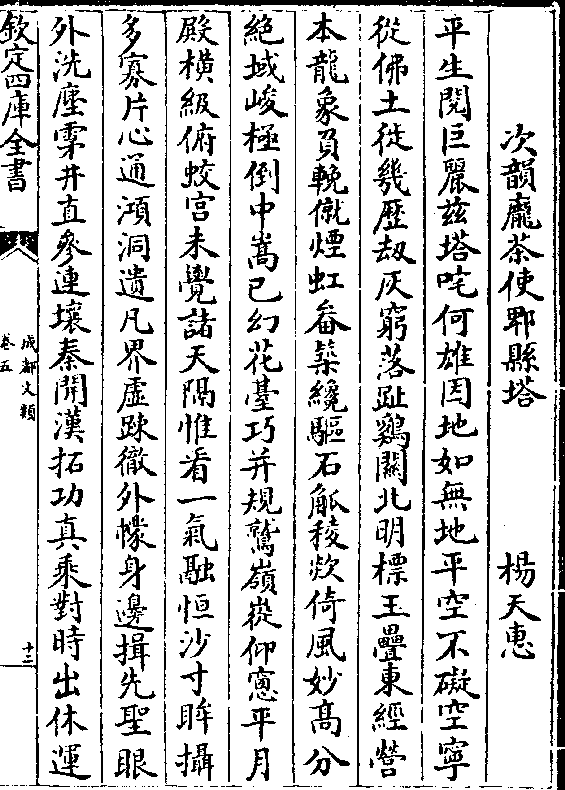 次韻龐茶使郫縣塔　楊天惠
平生閱巨麗兹塔咤何雄因地如無地平空不礙空寧
從佛土徙幾歴劫灰窮落趾鷄關北明標玉壘東經營
本龍象負輓僦煙虹畚築纔驅石觚稜欻倚風妙髙分
絶域峻極倒中嵩已幻花臺巧并規鷲嶺崧仰窻平月
殿横級俯蛟宫未覺諸天隔惟看一氣融恒沙寸眸攝
多寡片心通澒洞遺凡界虚踈徹外幪身邊揖先聖眼
外洗塵霿井直參連壤秦開漢拓功真乘對時出休運
欽定四庫全書
成都文類
卷五
十二